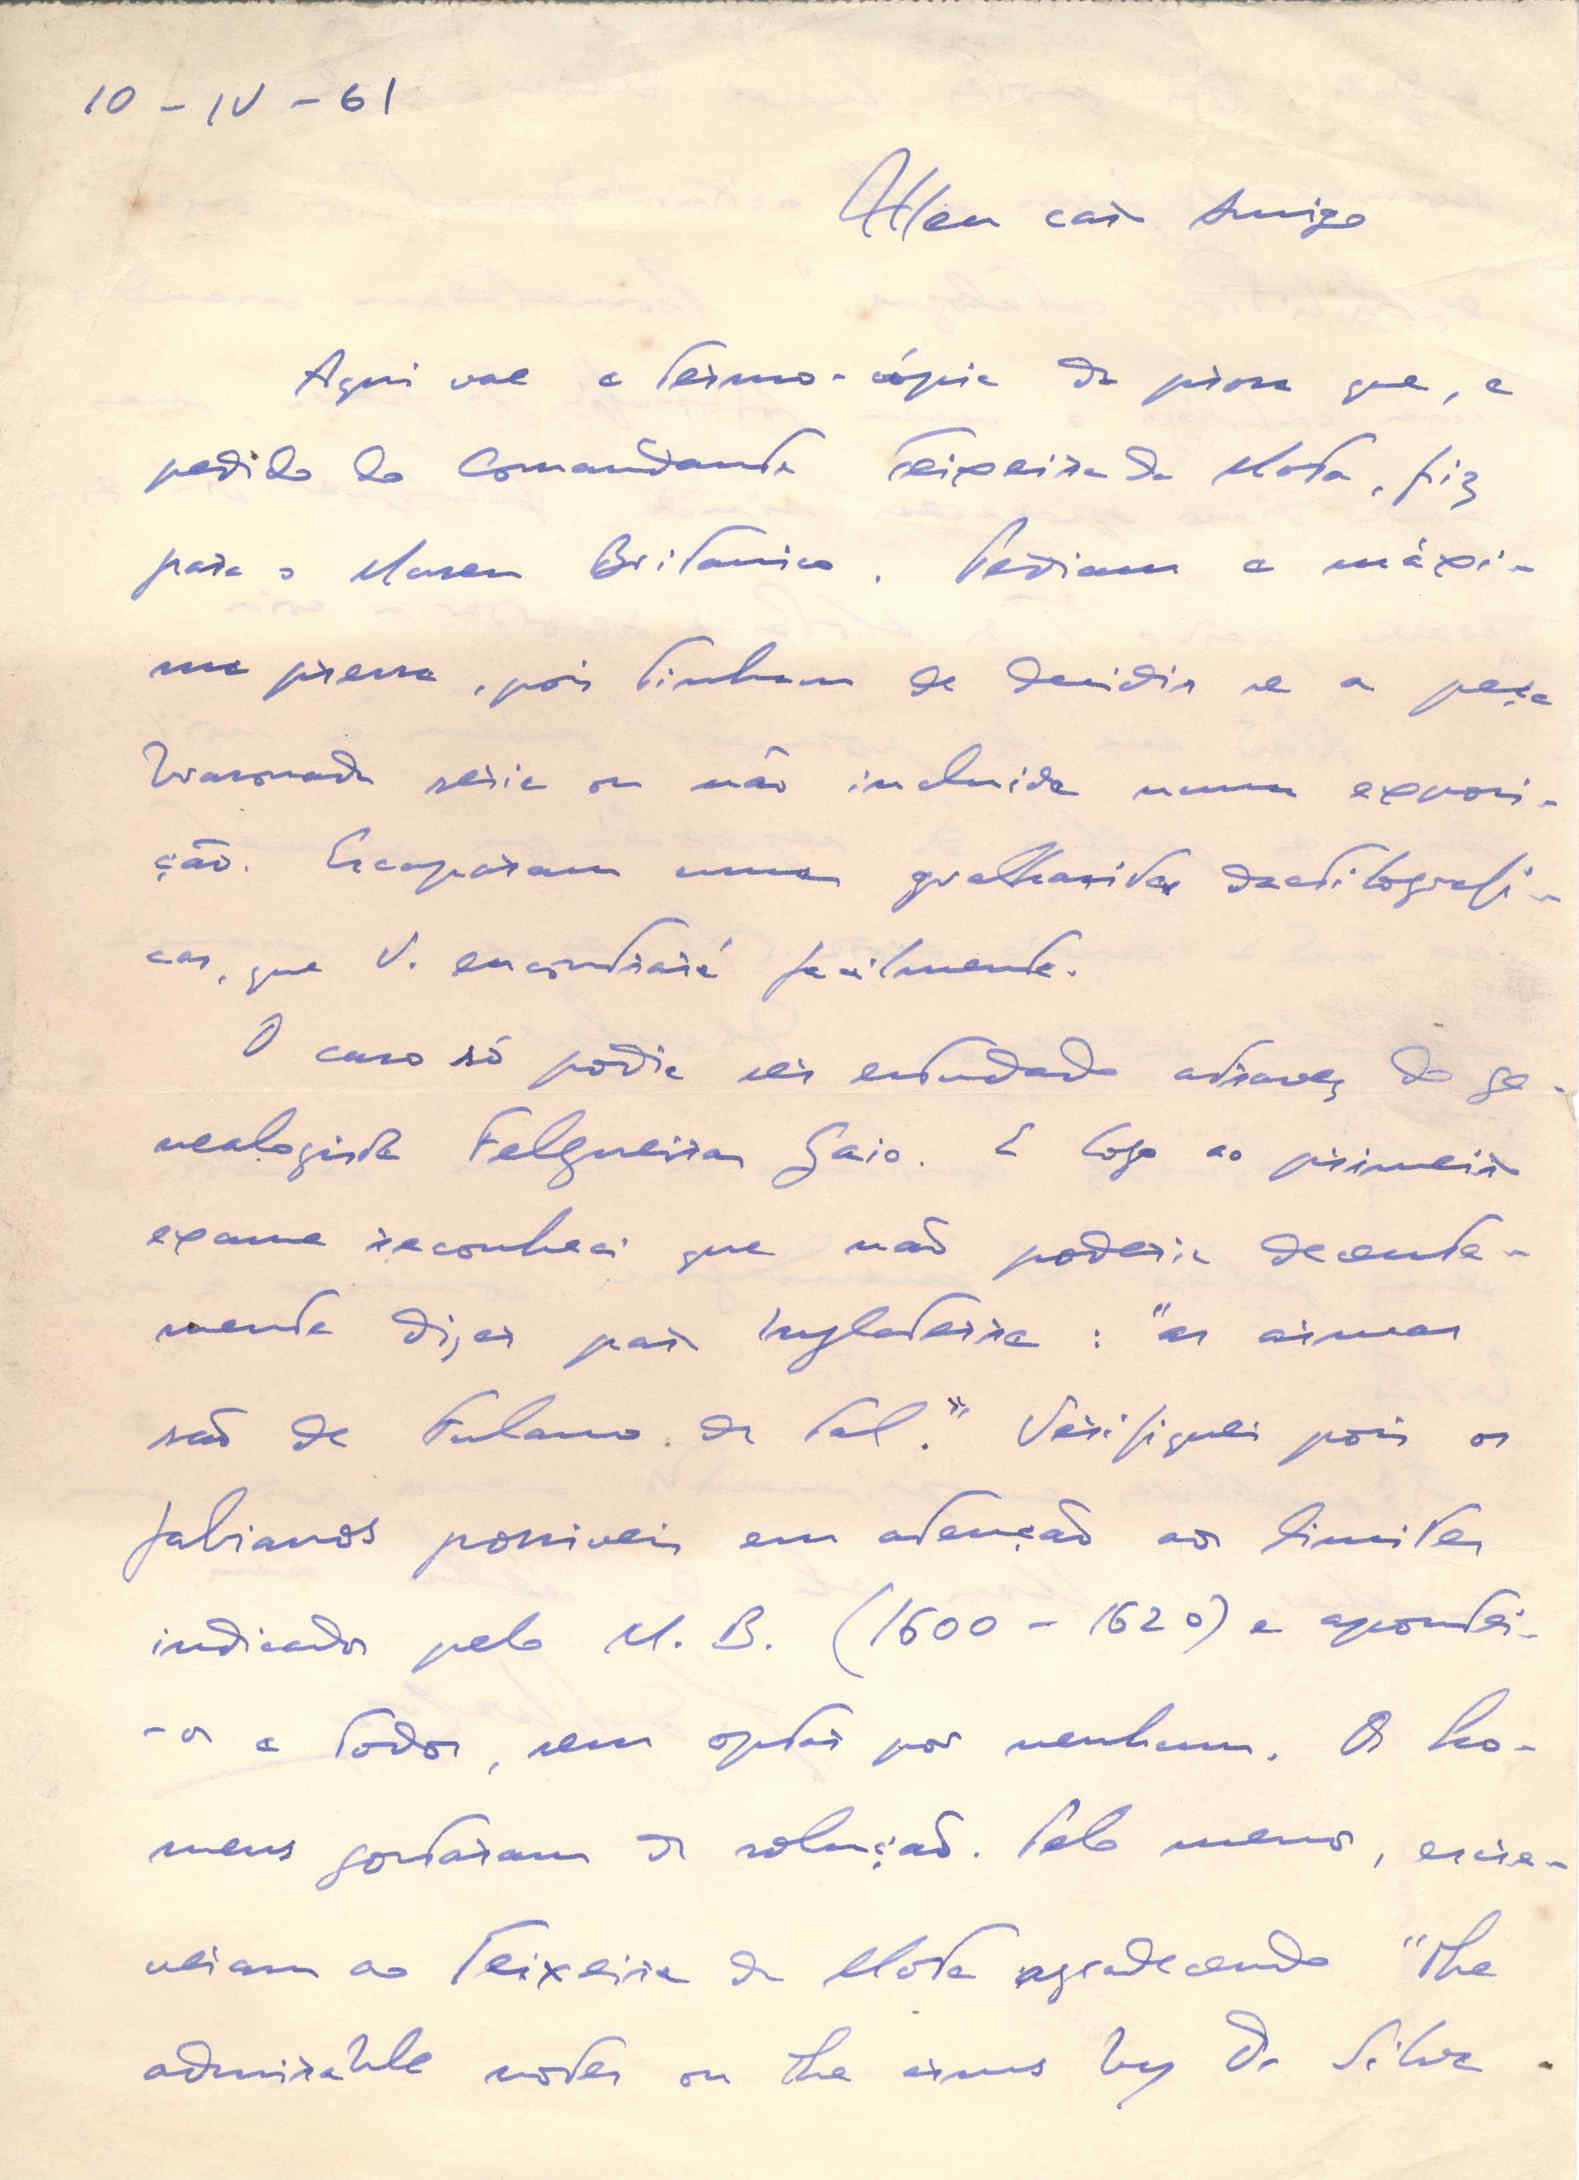 10 - IV - 61
Meu caro Amigo
Aqui vae a termo-cópia da prosa que, a
pedido do Comandante Teixeira da Mota, fiz
para o Museu Britanico. Pediam a máxi-
ma pressa, pois tinham de decidir se a peça
brasonada seria ou não incluida numa exposi-
ção. Escaparam umas gralhasitas dactilografi-
cas, que V. encontrará facilmente.
O caso só podia ser estudado atravez do ge-
nealogista Felgueiras Gaio. E logo ao primeiro
exame reconheci que não poderia decente-
mente dizer para Inglaterra : "as armas
são de Fulano de tal." Verifiquei pois os
fabianos possiveis em atenção aos limites
indicados pelo M. B. (1600 - 1620) e apontei-
-os a todos, sem optar por nenhum. Os ho-
mens gostaram da solução. Pelo menos, escre-
veram ao Teixeira da Mota agradecendo "the
admirable notes on the arms by Dr Silva